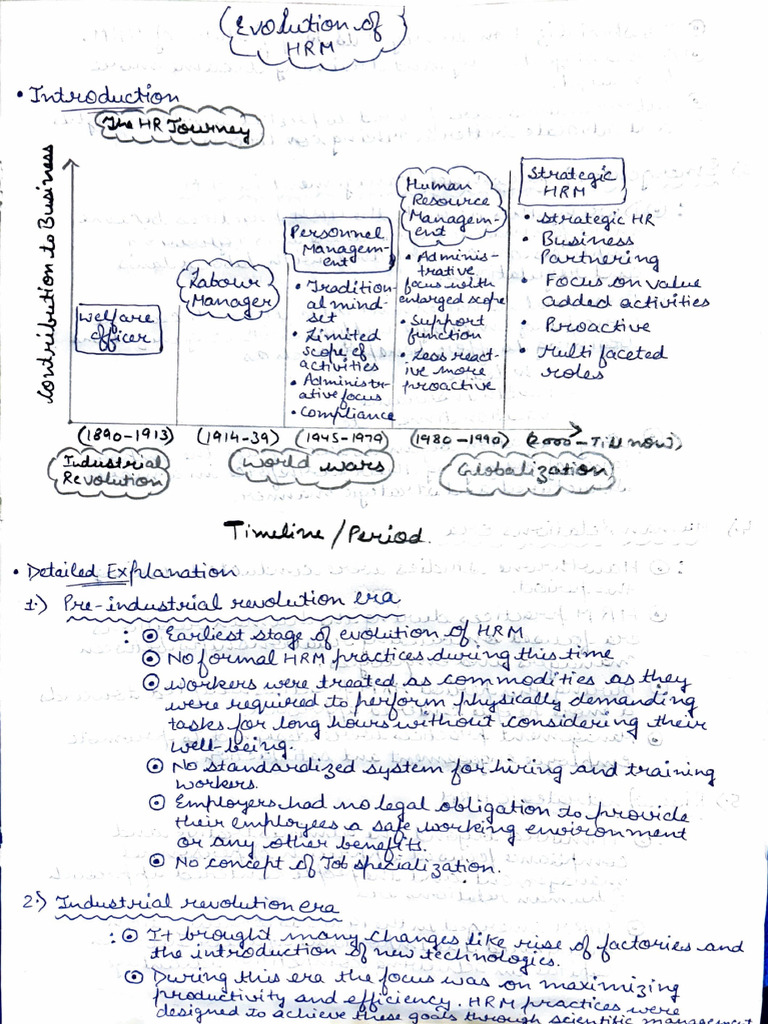 Evolution of
HRM
• Introduction
The HR Journey
Contribution to Business
Welfare
officer
Labour
Manager
Personnel
Managem-
ent
• Tradition-
al mind-
set
• Limited
scope of
activities
• Administr-
ative focus
• Compliance
Human
Resource
Managem-
ent
• Adminis-
trative
focus with
enlarged scope
• Support
function
• Less react-
ive more
proactive
Strategic
HRM
• Strategic HR
• Business
Partnering
• Focus on value
added activities
• Proactive
• Multi faceted
roles
(1890-1913) (1914-39) (1945-1979) (1980-1990) (2000-Till now)
Industrial
Revolution
World Wars
Globalization
Timeline/Period.
• Detailed Explanation
1.) Pre-industrial revolution era
: ⊙ Earliest stage of evolution of HRM
⊙ No formal HRM practices during this time
⊙ Workers were treated as commodities as they
were required to perform physically demanding
tasks for long hours without considering their
well-being.
⊙ No standardized system for hiring and training
workers.
⊙ Employers had no legal obligation to provide
their employees a safe working environment
or any other benefits.
⊙ No concept of Job specialization.
2.) Industrial revolution era
: ⊙ It brought many changes like rise of factories and
the introduction of new technologies.
⊙ During this era the focus was on maximizing
productivity and efficiency. HRM practices were
designed to achieve these goals through scientific management